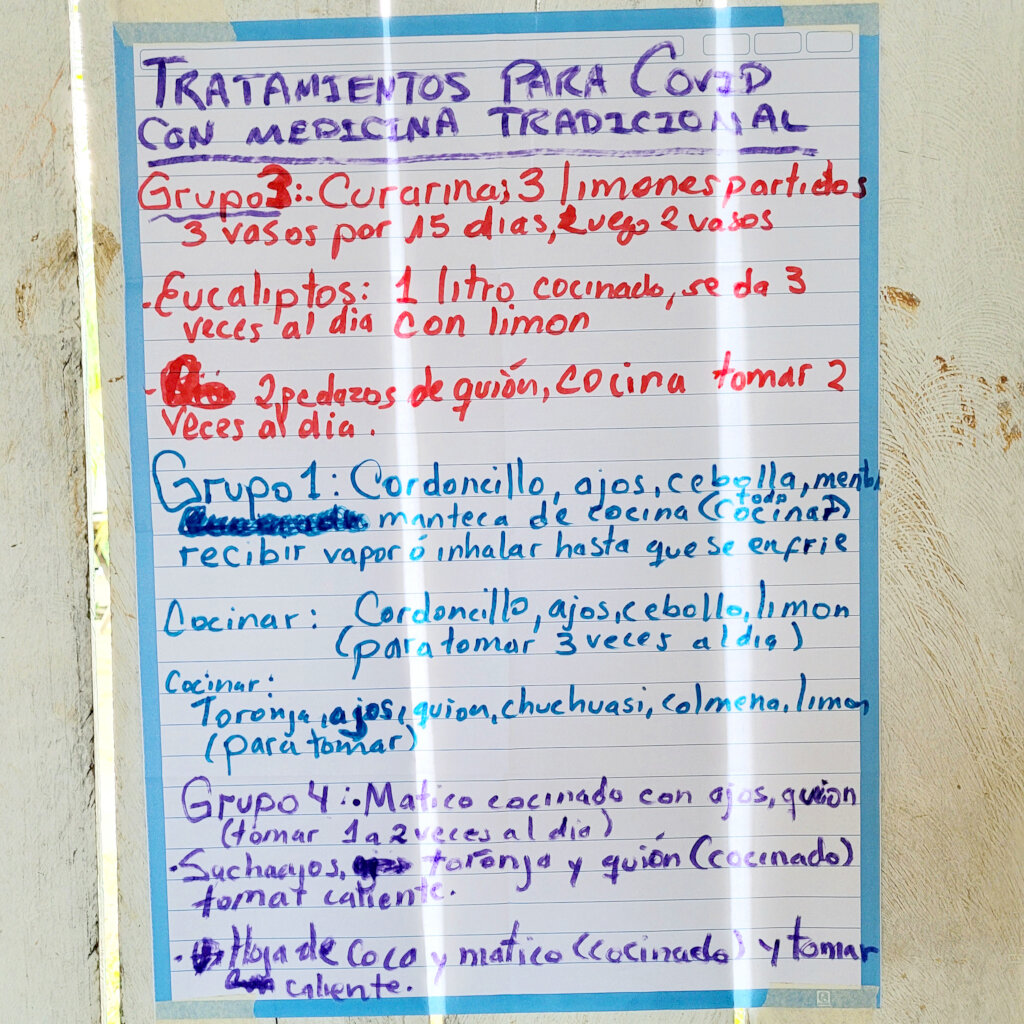 TRATAMIENTOS PARA COVID
CON MEDICINA TRADICIONAL
Grupo 3:. Curarina; 3 limones partidos
3 vasos por 15 dias, Luego 2 vasos
. Eucaliptos: 1 litro cocinado, se da 3
veces al dia con limon
. 2 pedazos de quión, cocina tomar 2
veces al dia.
Grupo 1: Cordoncillo, ajos, cebolla, menta
manteca de cocina (todo cocinar)
recibir vapor ó inhalar hasta que se enfrie
Cocinar: Cordoncillo, ajos, cebollo, limon
(para tomar 3 veces al dia)
Cocinar:
Toronja, ajos, quion, chuchuasi, colmena, limon
(para tomar)
Grupo 4:. Matico cocinado con ajos, quion
(tomar 1 a 2 veces al dia)
. Sachaajos, toronja y quión (cocinado)
tomar caliente.
. Hoja de coca y matico (cocinado) y tomar
caliente.